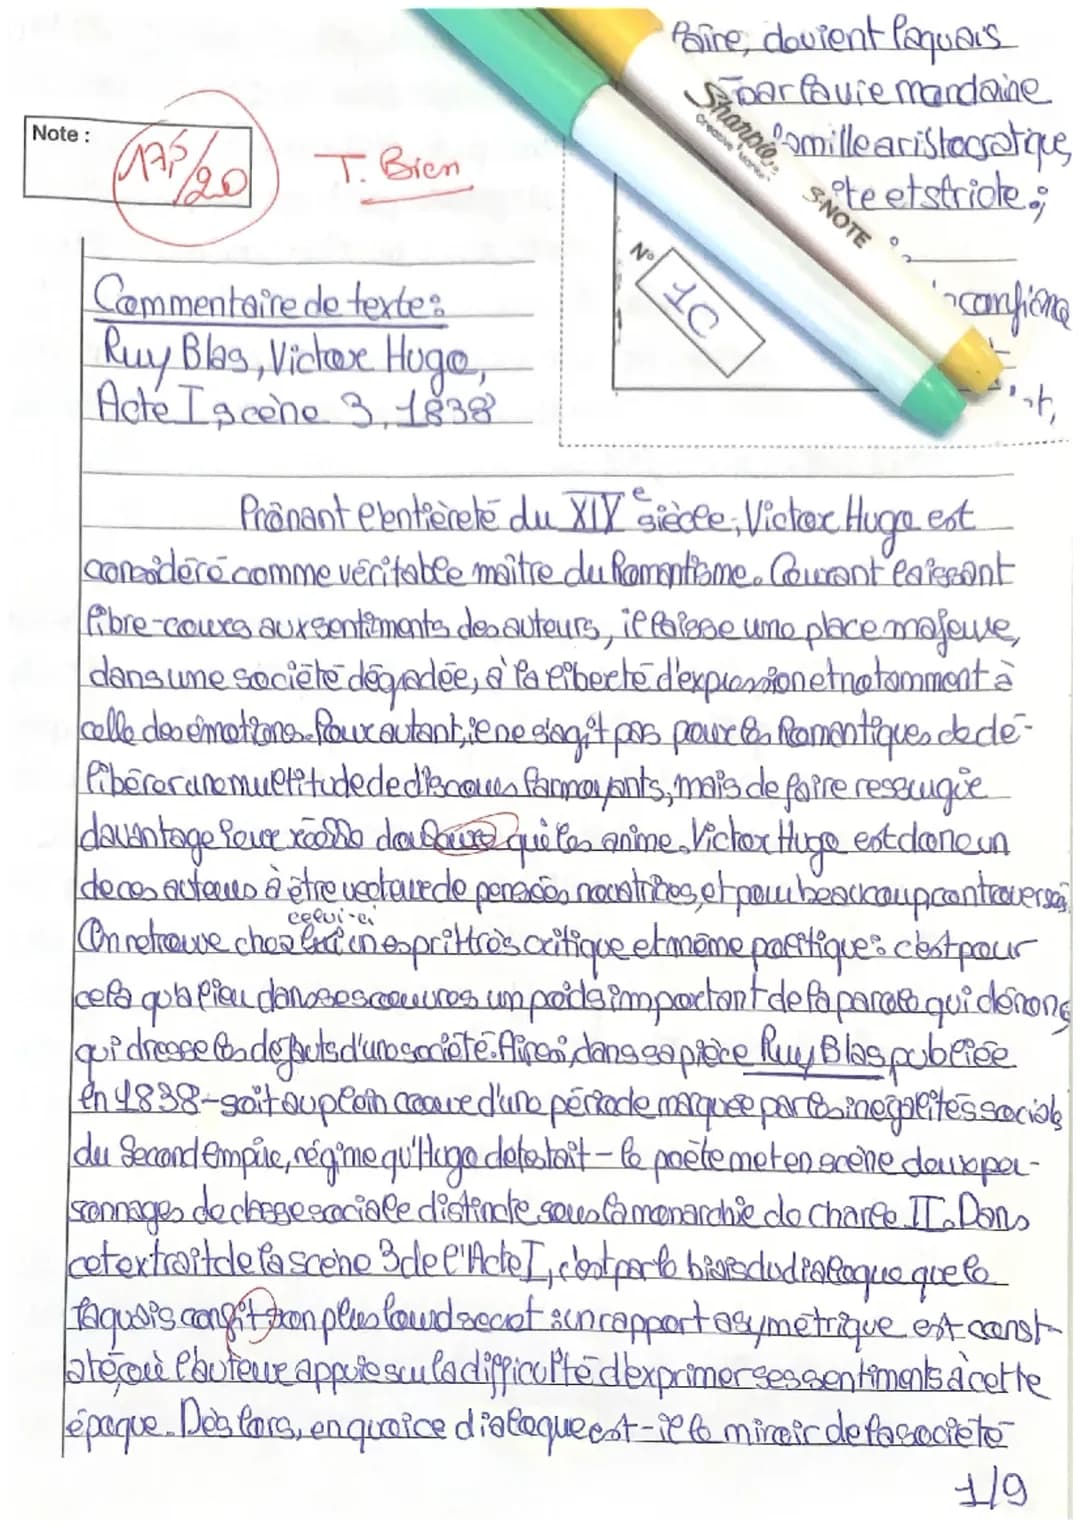 faire, devient laquais
par la vie mondaine
famille aristocratique,
ète et stricte ;
confiera
Note :
17,5/20
T. Bien
Sharpie
Creative Markers
S·NOTE
N°
1C
Commentaire de texte :
Ruy Blas, Victor Hugo,
Acte I scène 3, 1838
Prônant l'entièreté du XIXe siècle, Victor Hugo est
considéré comme véritable maître du Romantisme. Courant laissant
libre-cours aux sentiments des auteurs, il laisse une place majeure,
dans une société dégradée, à la liberté d'expression et notamment à
celle des émotions. Pour autant, il ne s'agit pas pour les Romantiques de dé-
libérer une multitude de discours larmoyants, mais de faire ressurgir
davantage leur réelle douleur qui les anime. Victor Hugo est donc un
de ces auteurs à être vecteur de pensées novatrices, et pour beaucoup controversées.
celui-ci
On retrouve chez un esprit très critique et même politique : c'est pour
cela qu'a lieu dans ses œuvres un poids important de la parole qui dénonce
qui dresse les défauts d'une société. Ainsi, dans sa pièce Ruy Blas publiée
en 1838 - soit au plein cœur d'une période marquée par les inégalités sociales
du Second Empire, régime qu'Hugo détestait - le poète met en scène deux per-
sonnages de classe sociale distincte sous la monarchie de Charle II. Dans
cet extrait de la scène 3 de l'Acte I, c'est par le biais du dialogue que le
laquais confit son plus lourd secret : un rapport asymétrique est const-
até, où l'auteur appuie sur la difficulté d'exprimer ses sentiments à cette
époque. Dès lors, en quoi ce dialogue est-il le miroir de la société
1/9